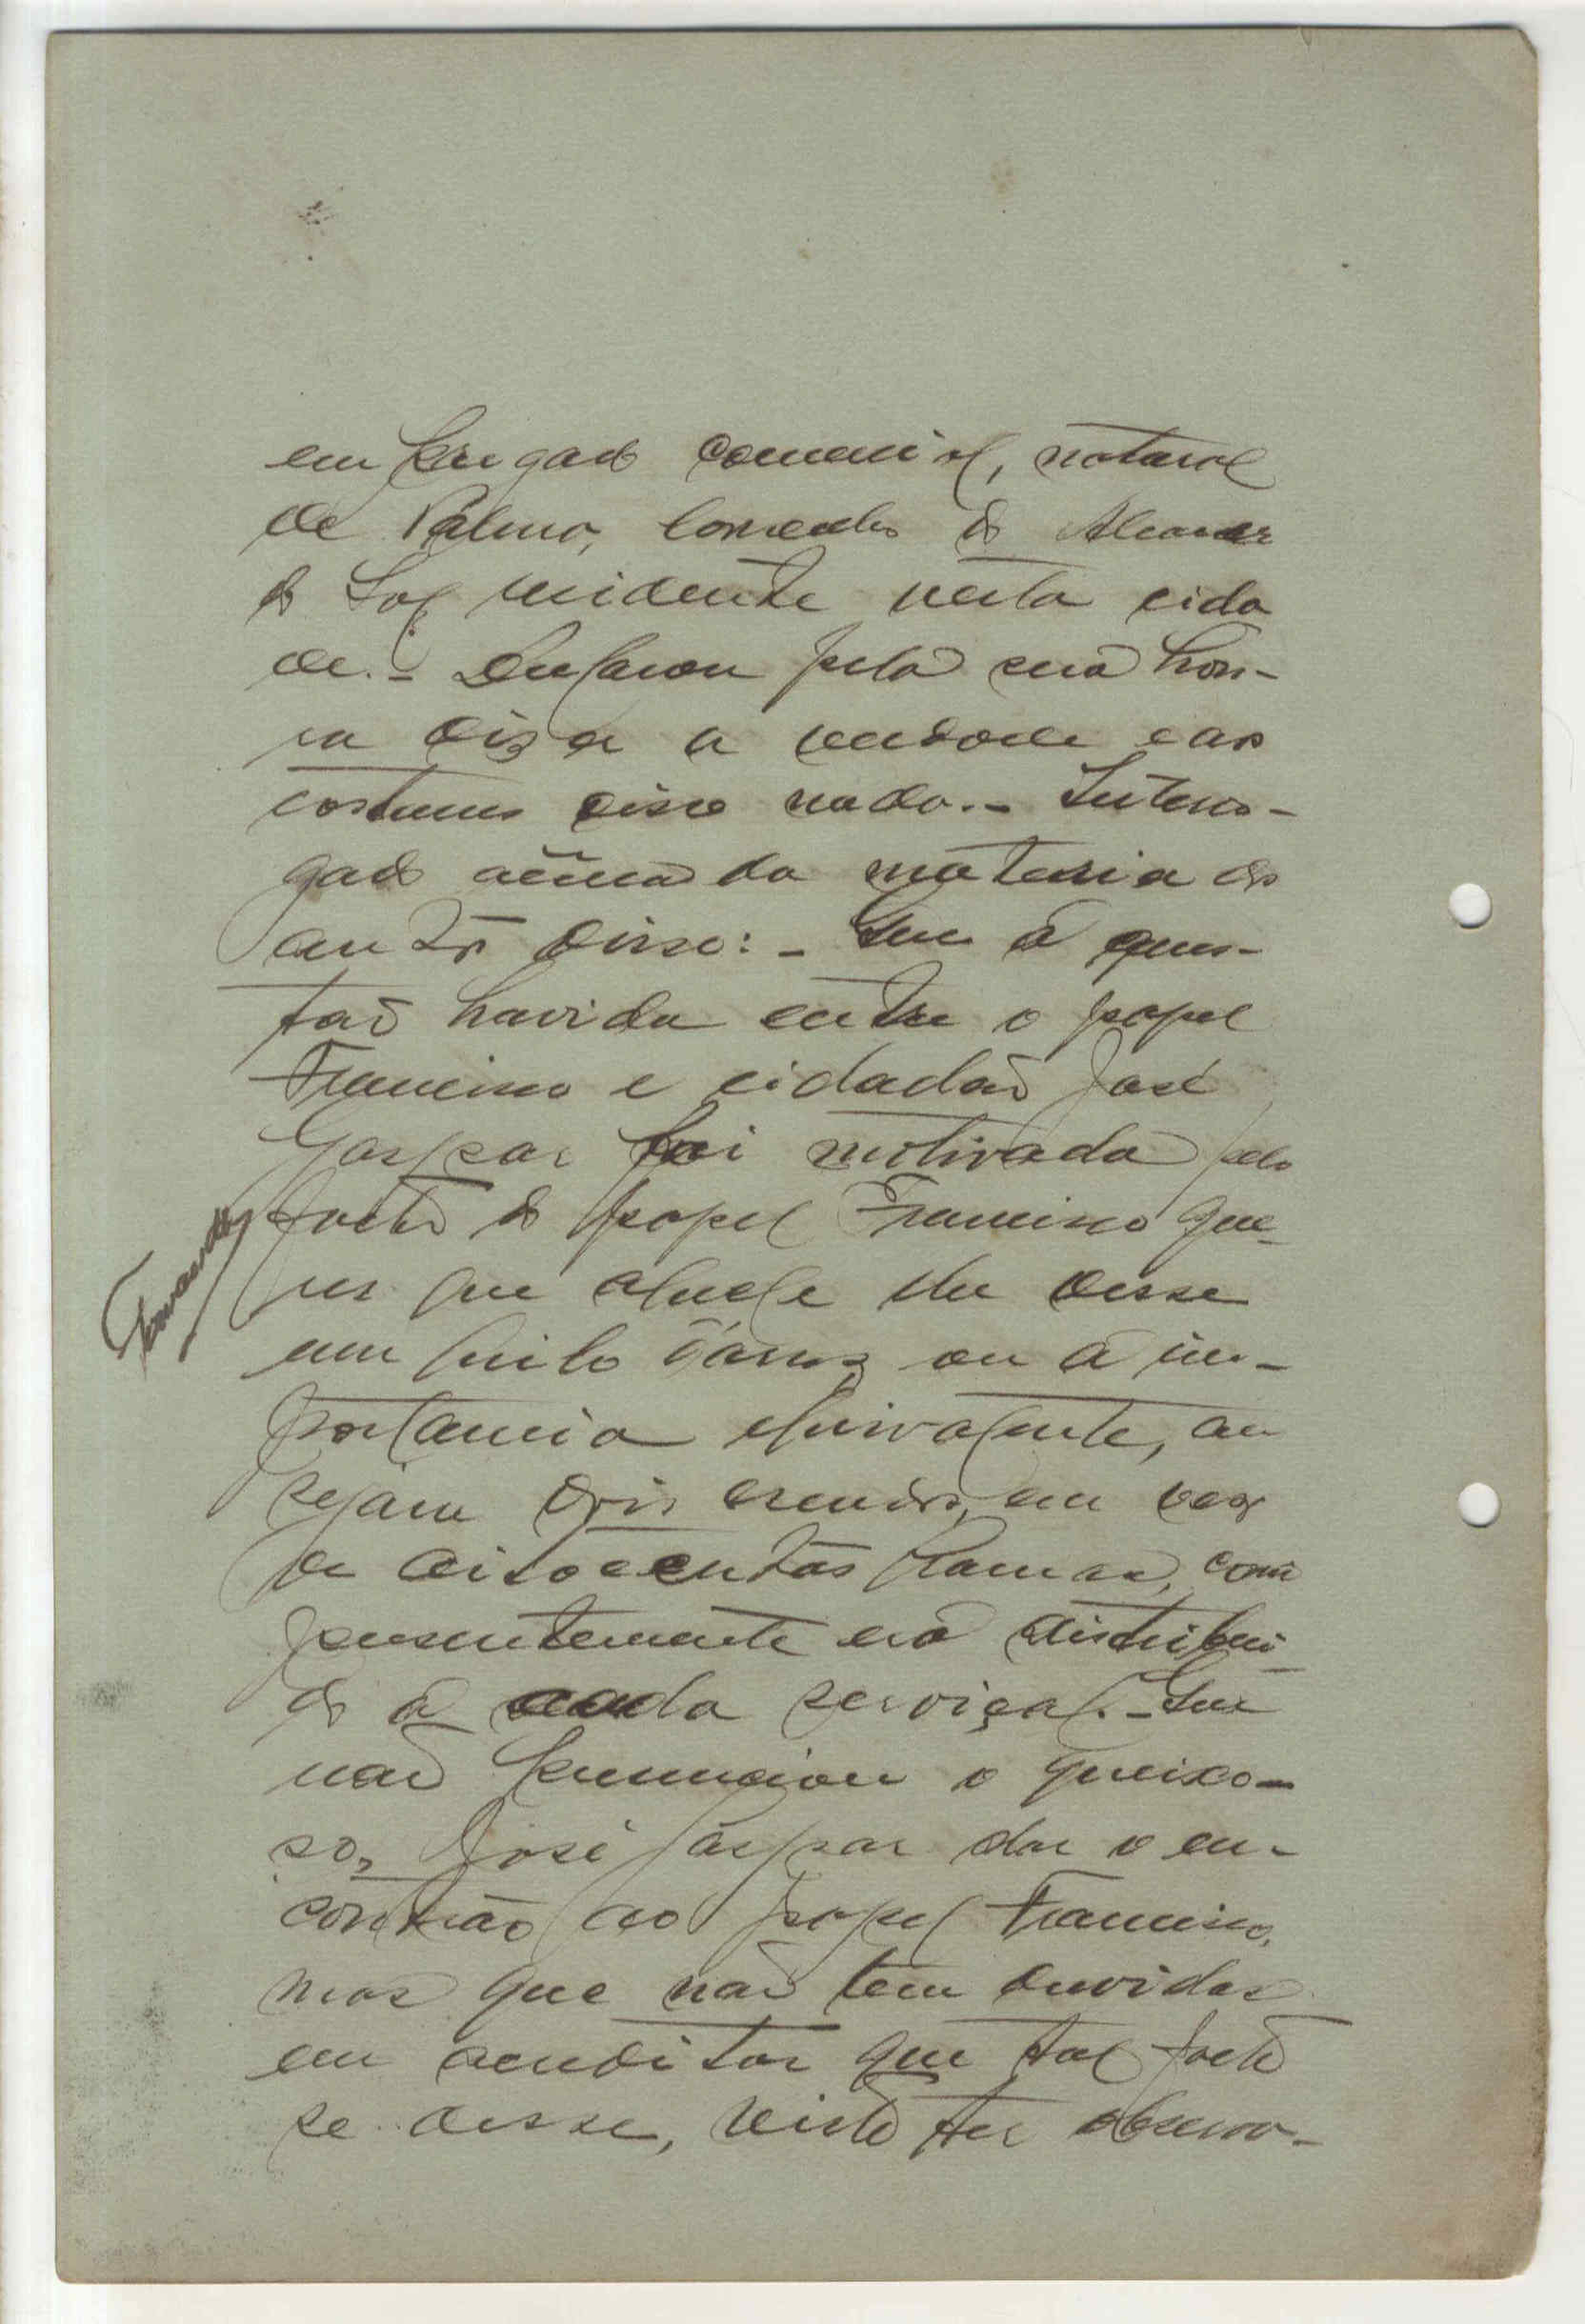 empregado comercial, natural
de Palma, Concelho de Alcacer
do Sal residente nesta cida
de. - Declarou pela sua hon-
ra dizer a verdade e aos
costumes disse nada. - Interro-
gado acêrca da materia do
auto disse: - Que a ques-
tão havida entre o papel
Francisco e cidadão José
Gaspar foi motivada pelo
facto do papel Francisco que-
rer que aquele lhe desse
um quilo d'arroz ou a im-
portancia equivalente, ou
sejam dois escudos, em vez
de oitocentas gramas, como
presentemente era distribui
do a cada serviçal. - Que
não presenciou o queixo-
so, José Gaspar dar o en-
contrão ao papel Francisco,
mas que não tem duvidas
em acreditar que tal facto
se desse, visto ter observa-